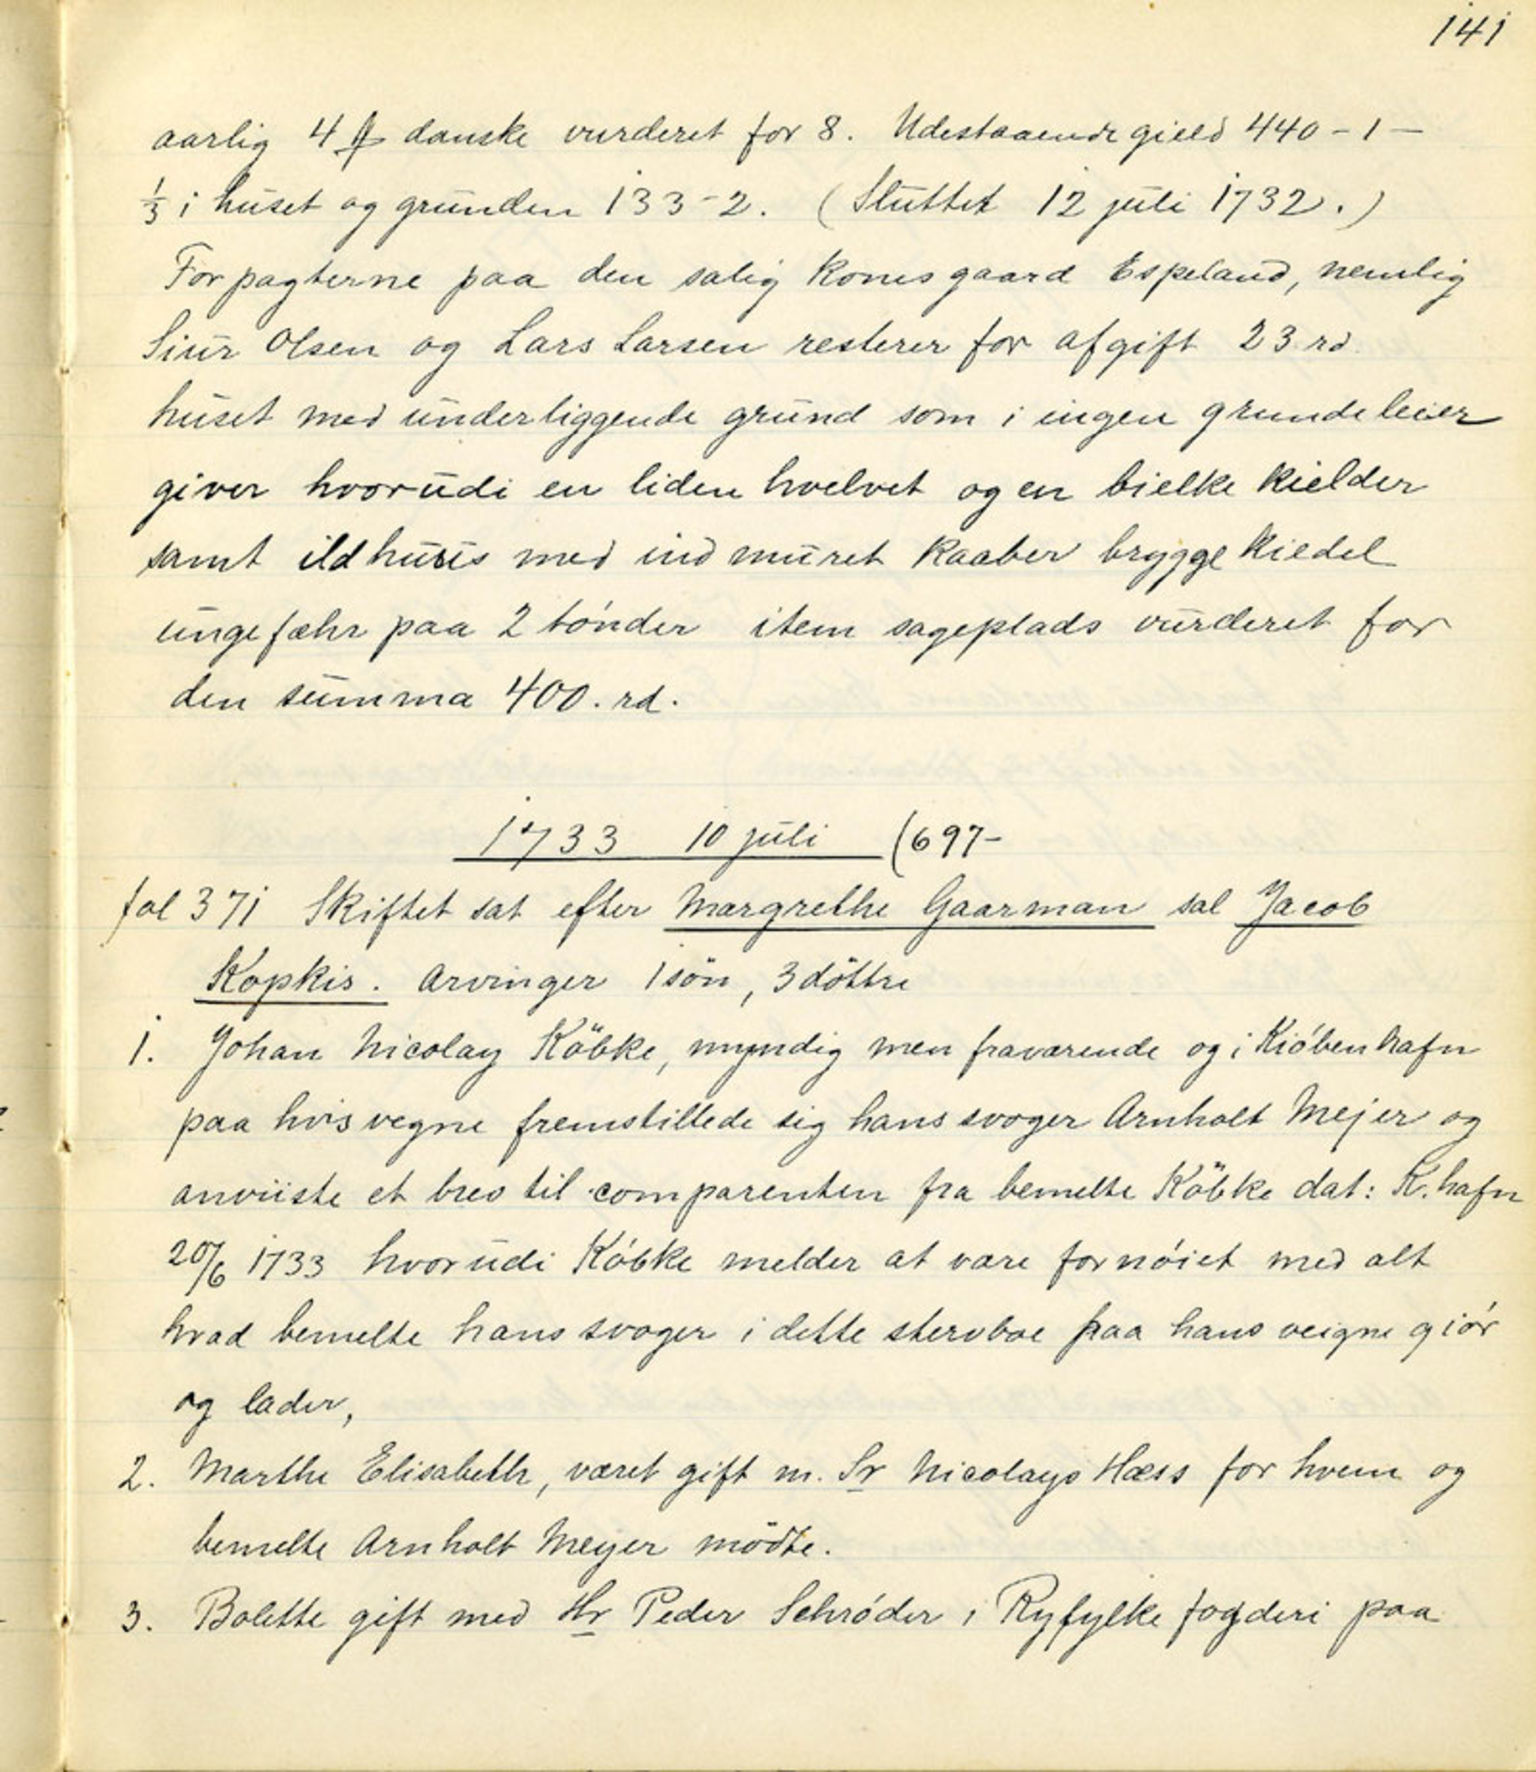 141
aarlig 4 ₰ danske vurderet for 8. Udestaaende gield 440-1-
⅓ i huset og grunden 133-2. (Sluttet 12 juli 1732.)
Forpagterne paa den salig konis gaard Espeland, nemlig
Siur Olsen og Lars Larsen resterer for afgift 23 rd.
huset med underliggende grund som i ingen grundeleier
giver hvorudi en liden hvelvet og en bielke kielder
samt ildhuus med indmuret kaaber bryggekiedel
ungefæhr paa 2 tónder item sageplads vurderet for
den summa 400. rd.
1733 10 juli (697-
fol 371 Skiftet sat efter Margrethe Gaarman sal Jacob
Kopkis. Arvinger 1 sön, 3 döttre
1. Johan Nicolay Köbke, myndig men fraværende og i Kióbenhafn
paa hvis vegne fremstillede sig hans svoger Arnholt Mejer og
anviiste et brev til comparenten fra bemelte Köbke dat: K.hafn
20/6 1733 hvorudi Kóbke melder at være fornóiet med alt
hvad bemelte hans svoger i dette stervboe paa hans veigne giór
og lader,
2. Marthe Elisabeth, været gift m. Sr Nicolays Hæss for hvem og
bemelte Arnholt Meyer mödte.
3. Bolette gift med Hr Peder Schróder i Ryfylke fogderi paa